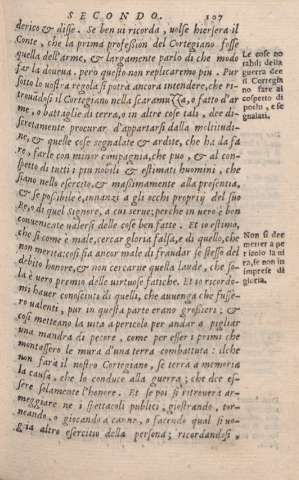 SECONDO. 107
derico & disse. Se ben vi ricorda, uolse hiersera il
Conte, che la prima profession del Cortegiano fosse
quella dell'arme, & largamente parlo di che modo
far la doueua. però questo non replicaremo piu. Pur
sotto lo nostra regola si potrà ancora intendere, che ri-
trouadosi il Cortegiano nella scaramuzza, o fatto d'ar
me, o battaglie di terra, o in altre cose tali, dee di-
scretamente procurar d'appartarsi dalla moltitudi-
ne, & quelle cose segnalate & ardite, che ha da fa
re, farle con minor compagnia, che puo, & al con-
spetto di tutti i piu nobili & estimati huomini, che
siano nello esercito, & massimamente alla presentia,
& se possibile è, innanzi a gli occhi proprij del suo
Re, o di quel Signore, a cui serue; perche in uero è ben
conueniente ualersi delle cose ben fatte. Et io estimo,
che si come è male, cercar gloria falsa, e di quello, che
non merita: cosi sia ancor male di fraudar se stesso del
debito honore, & non cercarne quella laude, che so-
la è uero premio delle uirtuose fatiche. Et io ricordo-
mi hauer conosciuto di quelli, che auuenga che fusse-
ro ualenti, pur in questa parte erano grosseri; &
cosi metteano la uita a pericolo per andar a pigliar
una mandra di pecore, come per esser i primi che
montassero le mura d'una terra combattuta: ilche
non farà il nostro Cortegiano, se terrà a memoria
la causa, che lo conduce alla guerra; che dee es-
sere solamente l'honore. Et se poi si ritrouerà ar-
meggiare ne i spettacoli publici, giostrando, tor-
neando, o giocando a canne, o facendo qual si uo-
glia altro esercitio della persona; ricordandosi,
Le cose no
tabili della
guerra dee
il Cortegia
no fare al
cospetto di
pochi, e se
gnalati.
Non si dee
metter a pe
ricolo la ui
ta, se non in
imprese di
gloria.